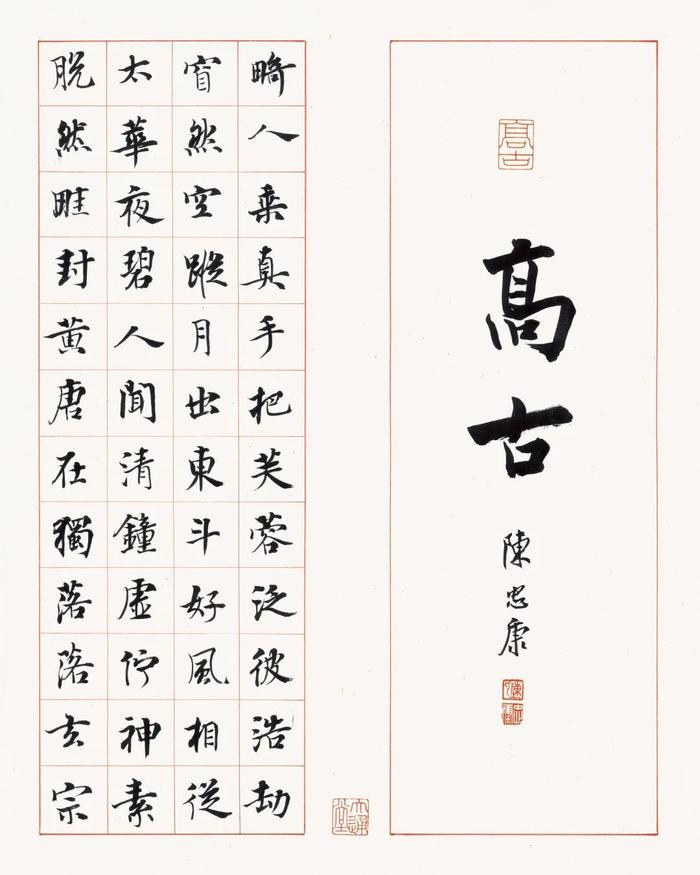 高古
高古
陳忠康
畸人乘真手把芙蓉泛彼浩劫
窅然空蹤月出東斗好風相從
太華夜碧人聞清鐘虛佇神素
脫然畦封黃唐在獨落落玄宗